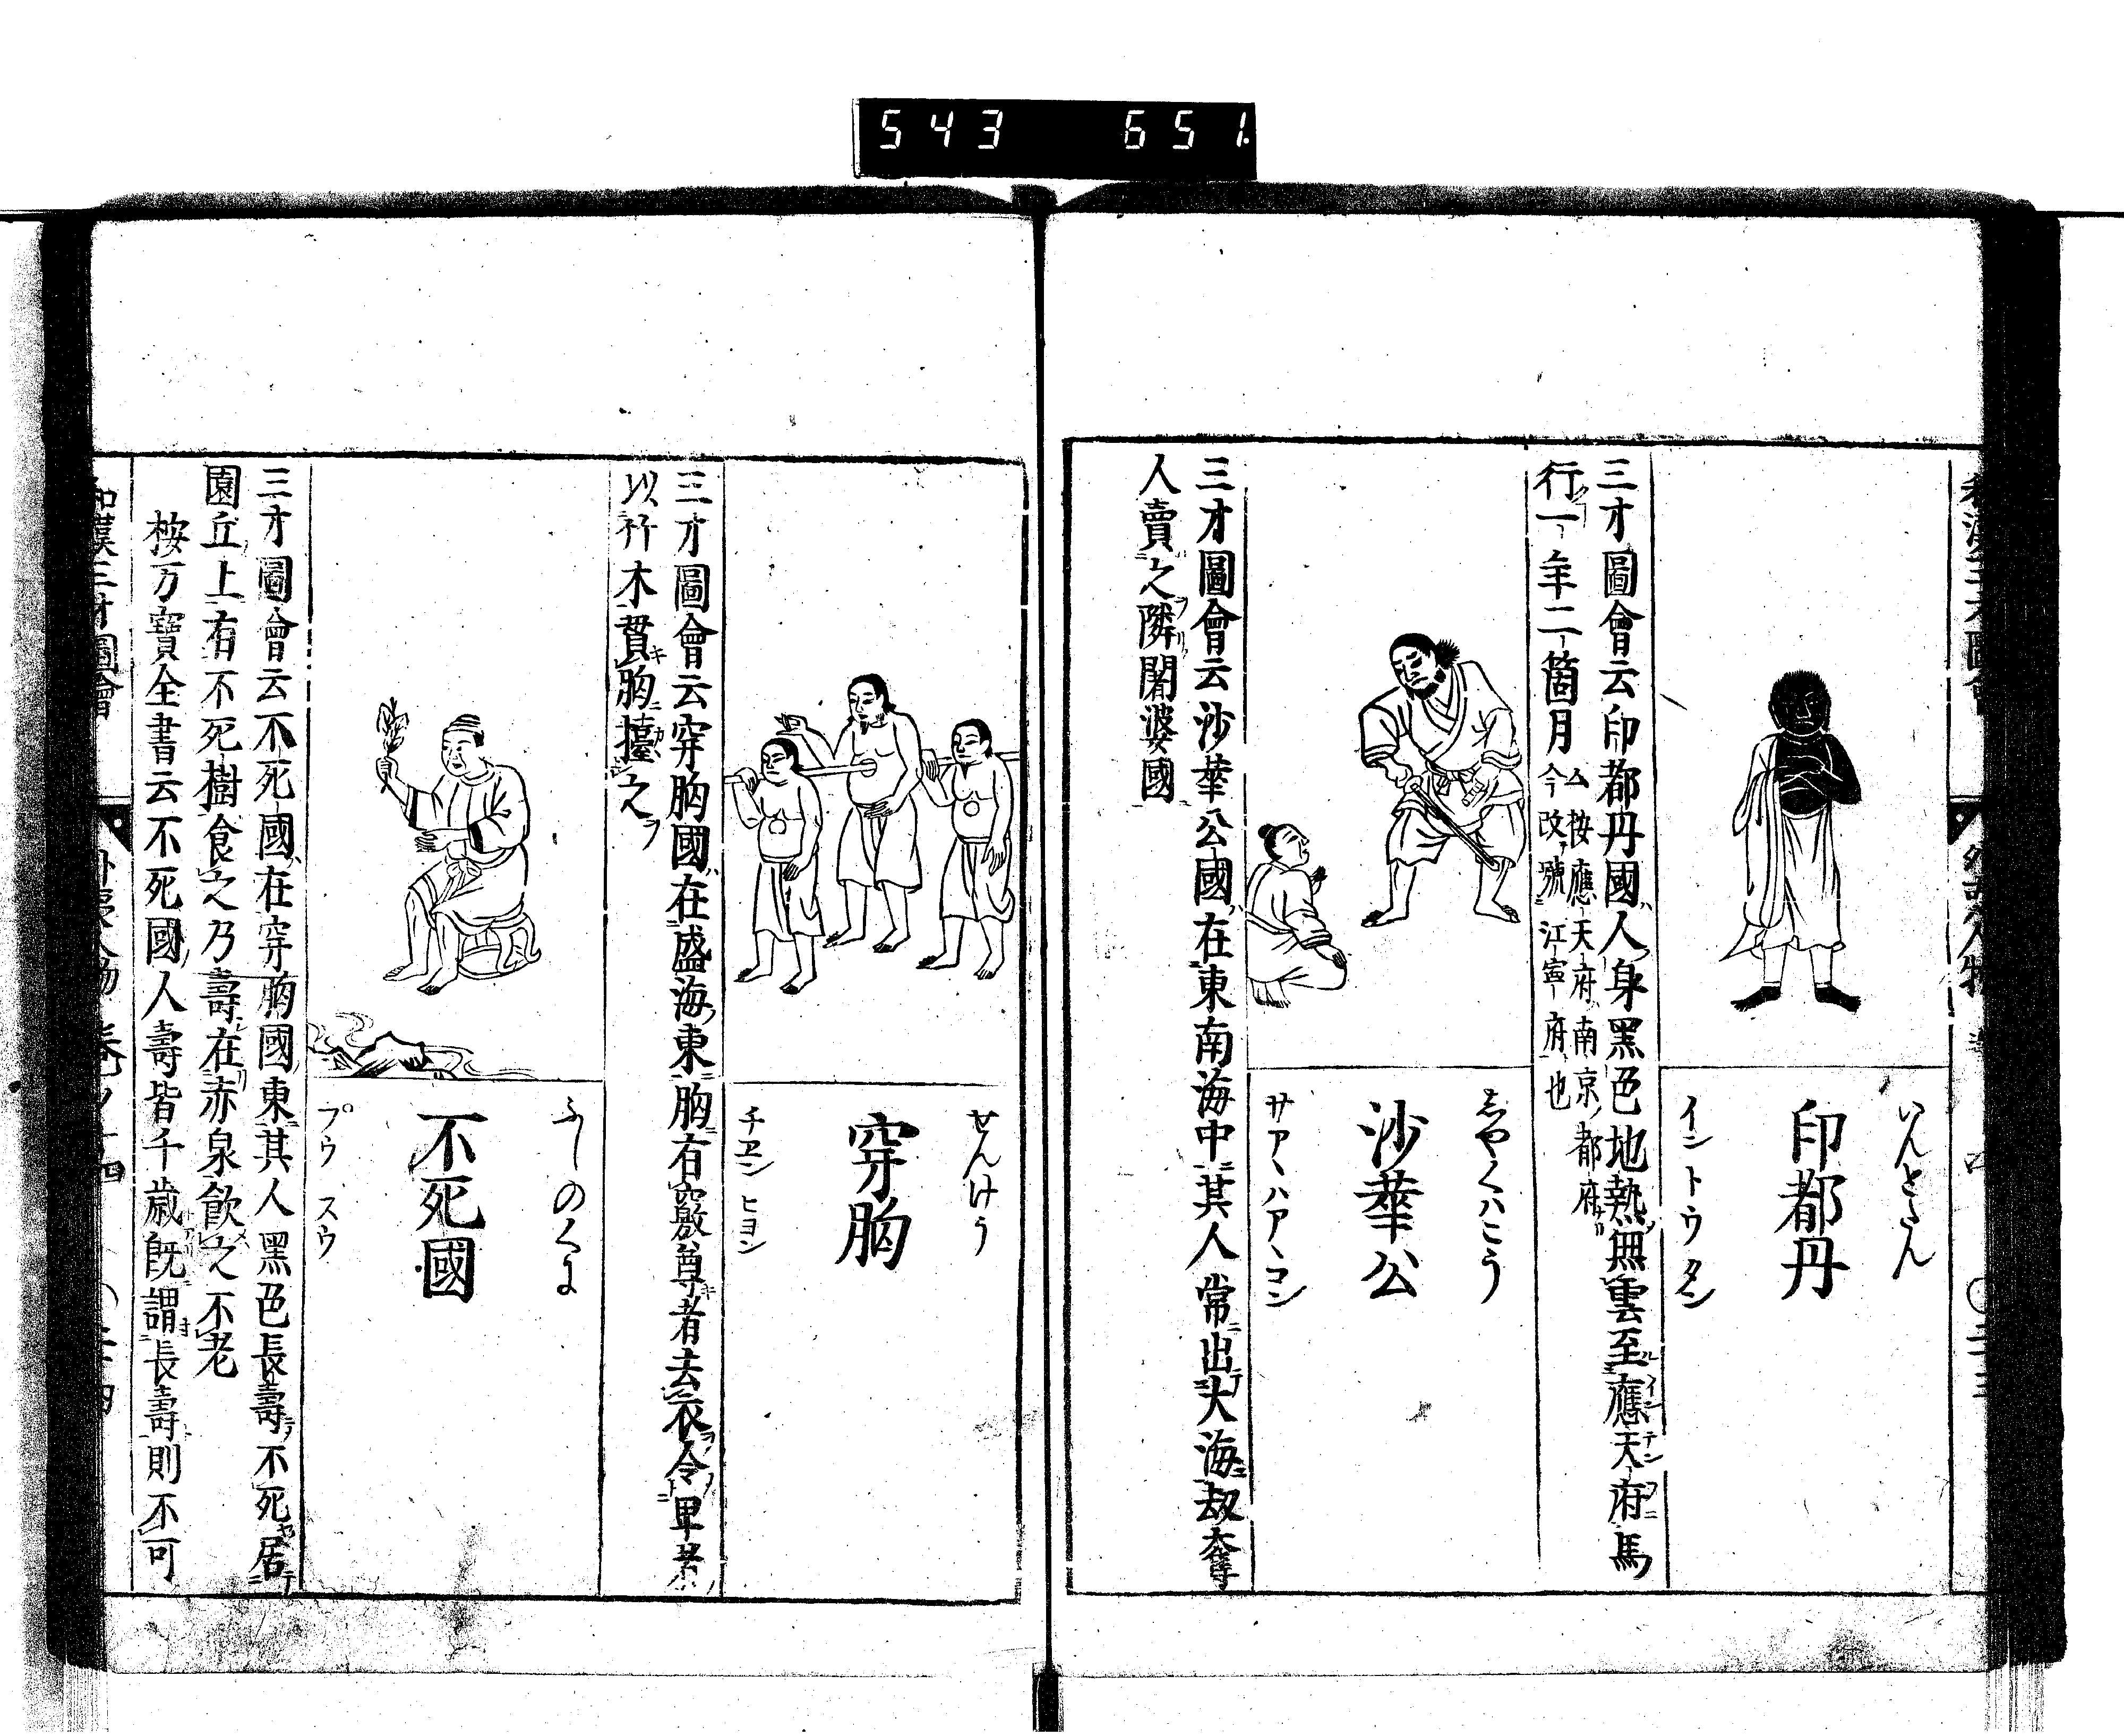 543 651
いんとたん
印都丹
イントウタン
三才圖會云印都丹國人身黑色地熱無雲至應天府馬
行一年二箇月
△按應天府南京都府
今改號江寧府也
志やくハこう
沙華公
サアヽハアヽコン
三才圖會云沙華公國在東南海中其人常出大海刼奪
人賣之隣闍婆國
せんけう
穿胸
チヱンヒヨン
三才圖會云穿胸國在盛海東胸有竅尊者去衣令卑者
以竹木貫胸擡之
ふしのくに
不死國
プウスウ
三才圖會云不死國在穿胸國東其人黑色長壽不死居
園丘上有不死樹食之乃壽在赤泉飮之不老
按万寶全書云不死國人壽皆千歳既謂長壽則不可
和漢三才圖會
外夷人物
卷ノ十四